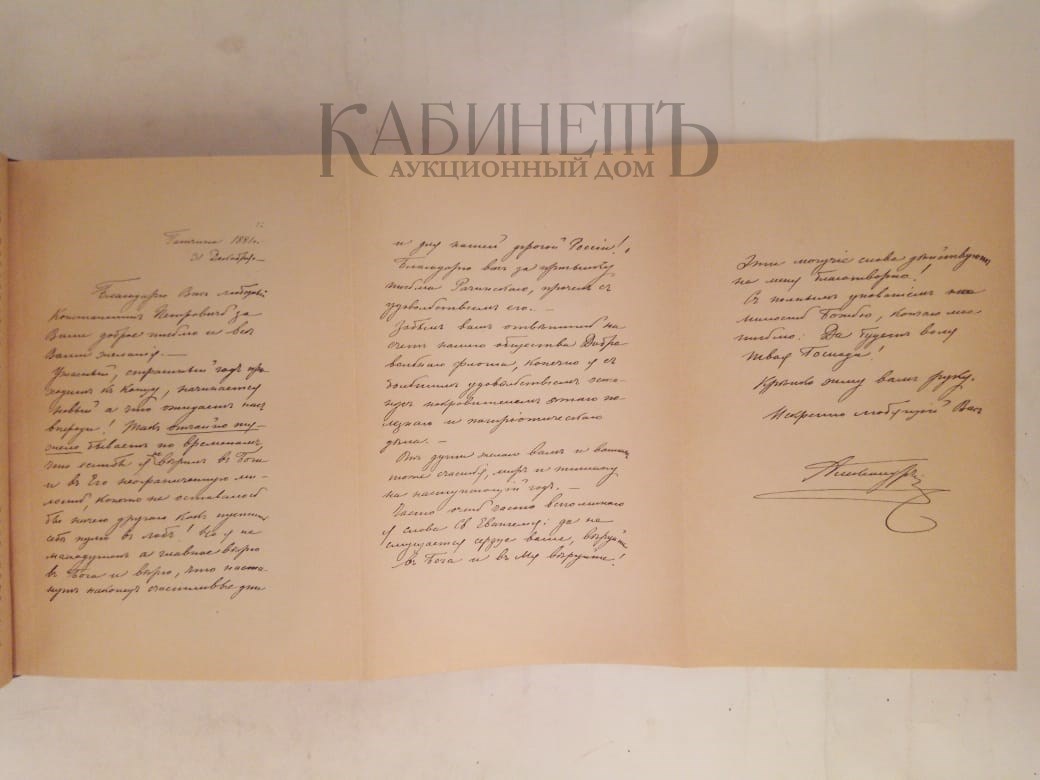 КАБИНЕТЪ
АУКЦИОННЫЙ ДОМ
Гатчина 1881 г.
31 Декабря.
Благодарю Васъ любезный
Константинъ Петровичъ за
Ваше доброе письмо и всѣ
Ваши желанія. —
Ужасный, страшный годъ при-
ходитъ къ концу, начинается
новый, а что ожидаетъ насъ
впереди! Такъ отчаянно тя-
жело бываетъ по временамъ,
что еслибъ я не вѣрилъ въ Бога
и въ Его неограниченную ми-
лость, конечно не оставалось
бы ничего другаго какъ пустить
себѣ пулю въ лобъ! Но я не
малодушенъ а главное вѣрю
въ Бога и вѣрю, что наста-
нутъ наконецъ счастливые дни
и для нашей дорогой Россіи!
Благодарю васъ за присылку
письма Рачинскаго, прочелъ съ
удовольствіемъ его. —
Забылъ вамъ отвѣтить на
счетъ нашего общества Добро-
вольнаго флота, конечно я съ
большимъ удовольствіемъ оста-
нусь покровителемъ этаго по-
лезнаго и патріотическаго
дѣла. —
Отъ души желаю вамъ и вашимъ
тоже счастія, миръ и тишину
на наступающій годъ. —
Часто очень часто вспоминаю
я слова Св. Евангелія: да не
смущается сердце ваше, вѣруйте
въ Бога и въ Мя вѣруйте!
Эти могучіе слова дѣйствуютъ
на меня благотворно!
Съ полнымъ упованіемъ на
милость Божью, кончаю мое
письмо: Да будетъ воля
Твоя Господи!
Крѣпко жму вашу руку.
Искренно любящій Васъ
Александръ